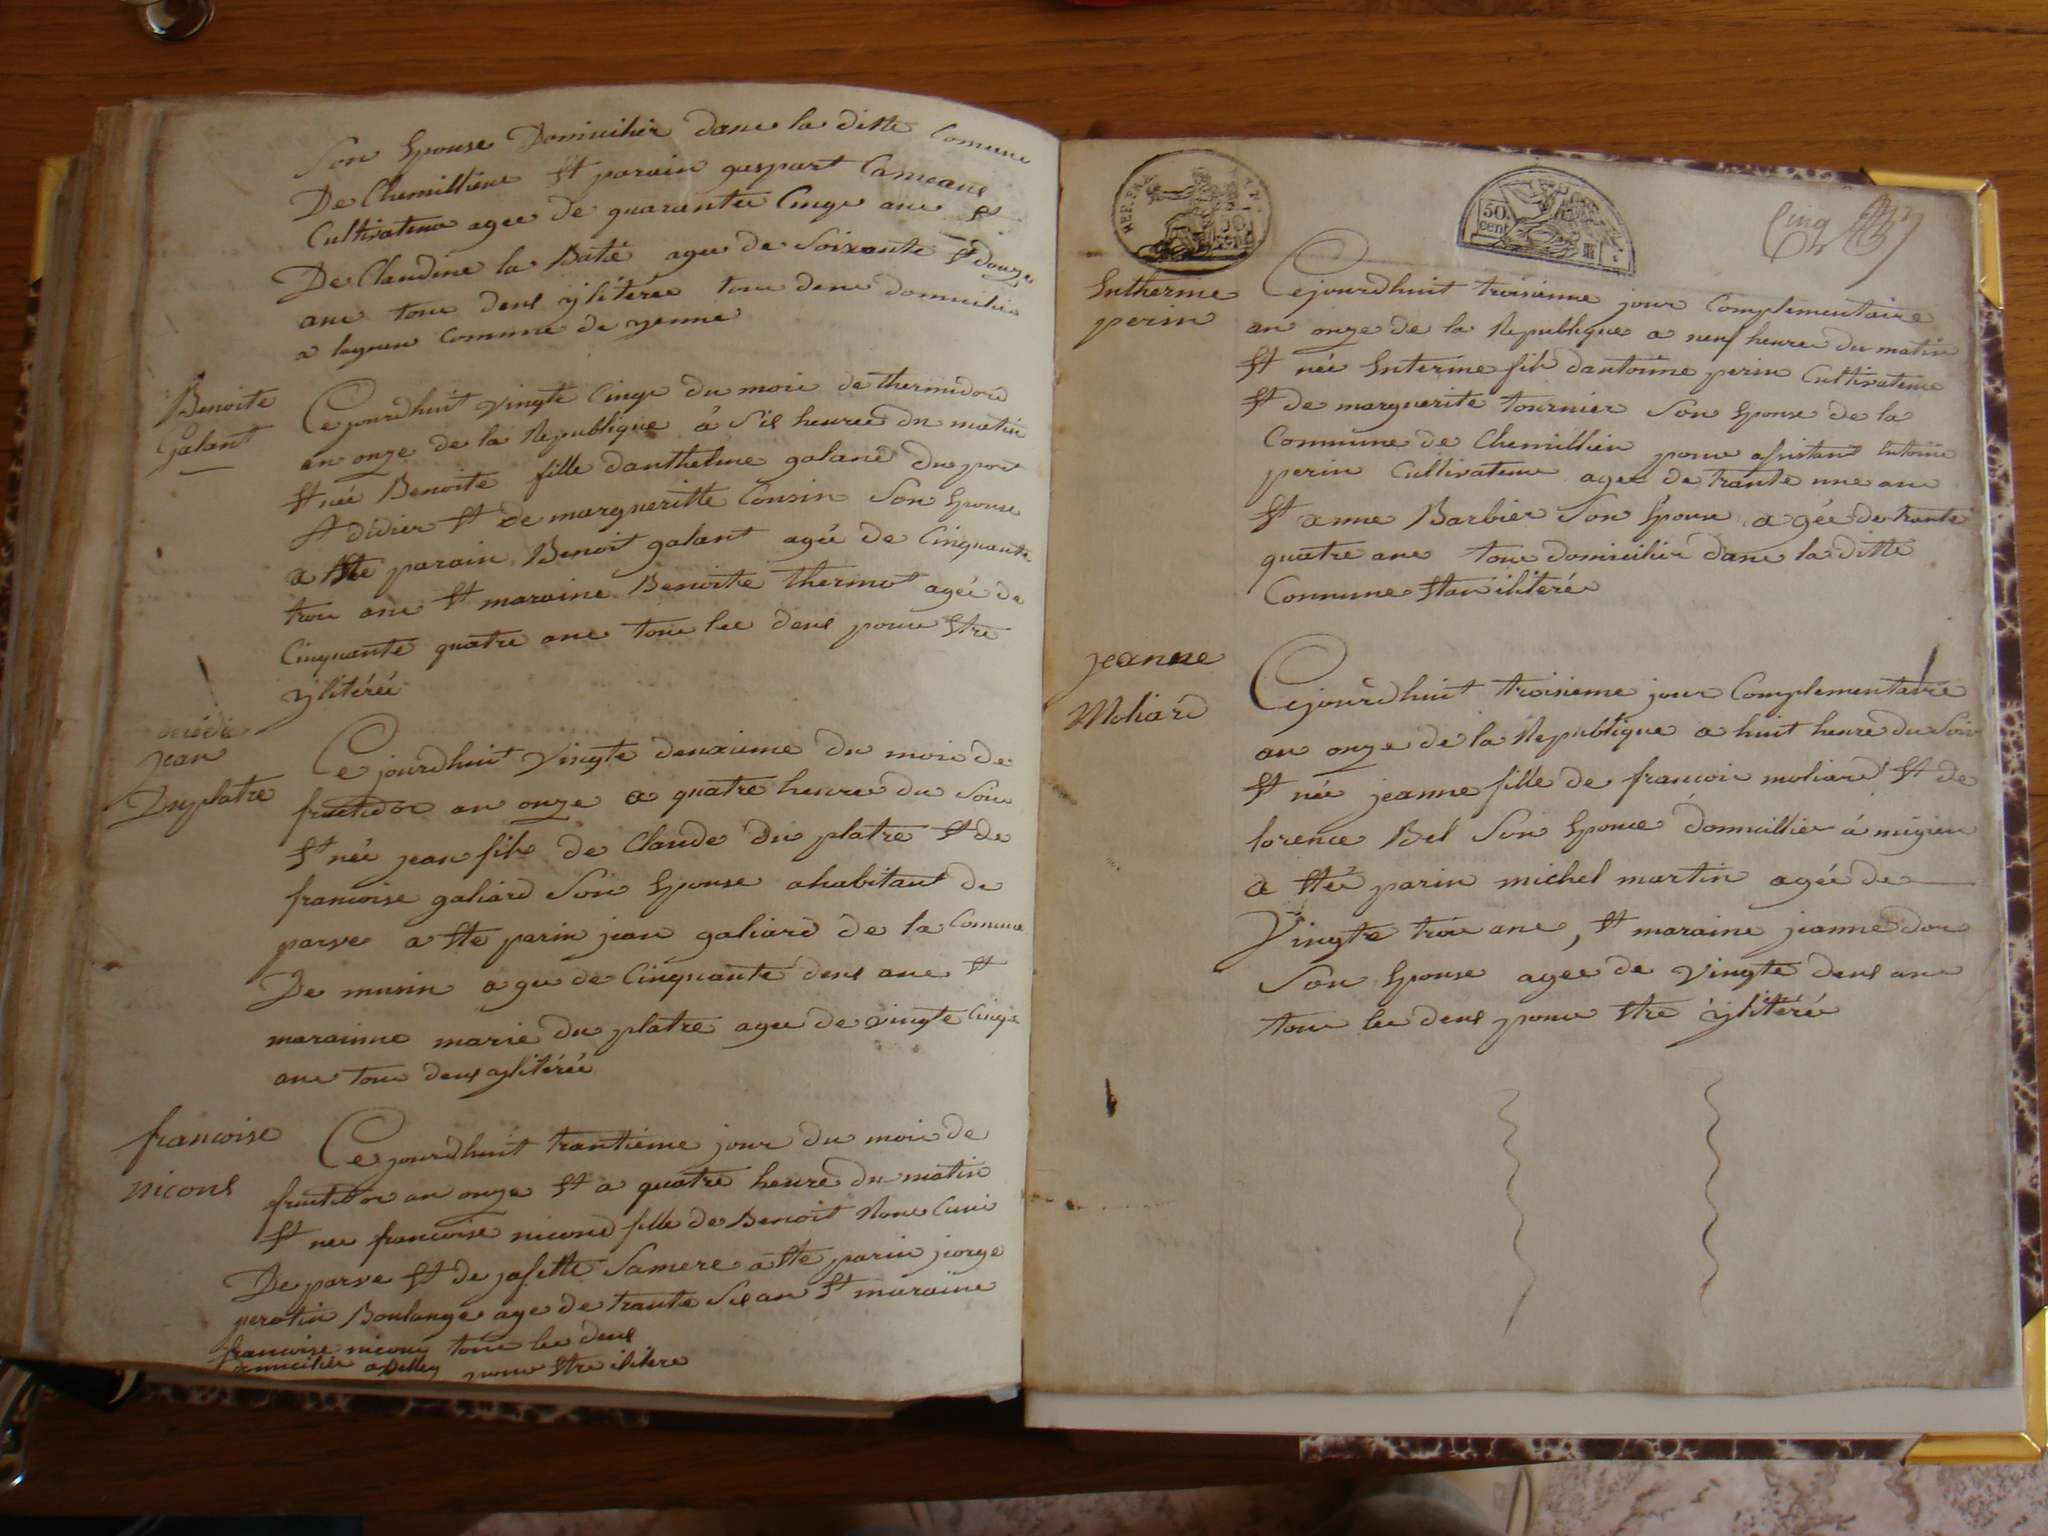 Son Epouse Domicilier dans la ditte Comune
De Chemillieux Et parain gaspart
Cultivateur agee de quarantee Cinqe ans et
De Claudine la Baté agee de Soixante Et douze
ans tous deux yliterée tous deux domicilier
a lagneux Commune de yenne
Benoite
Galant
Cejourdhuit vingte Cinqe du mois de thermidord
an onze de la Republique à Six heures du matin
Et née Benoite fille danthelme galand du port
St didier Et de margueritte Cousin Son Epouse
a Ete parain Benoit galant agée de Cinquante
trois ans Et maraine Benoitte thermot agée de
Cinquante quatre ans tous les deux pour Etre
yliterée
Jean
Duplatre
Cejourdhuit Vingte deuxieme du mois de
fructidor an onze a quatre heures du Soir
Et née jean fils de Claude du platre Et de
francoise galiard Son Epouse ahabitant de
parve a Ete parin jean galiard de la Comune
De musin agee de Cinquante deux ans Et
marainne marie du platre agee de vingte Cinqe
ans tous deux ylitérée
francoise
nicoud
Cejourdhuit trantieme jour du mois de
fructidor an onze Et a quatre heure du matin
Et nee francoise nicoud fille de Benoit
De parve Et de josette Samere a Ete parin jorge
perotin Boulange age de trante Six an Et maraine
francoise nicoud tous les deux
domicilier a pour Etre ilitere
HEP. FRA.
50 cent.
50. cent.
Cinq
Entherme
perin
Cejourdhuit troisieme jour Complementaire
an onze de la Republique a neuf heures du matin
Et née Enterime fils dantoinne perin Cultivateur
Et de marguerite tournier Son Epouse de la
Commune de Chemillieu pour assistant Entoine
perin Cultivateur agee de trante une ans
Et anne Barbier Son Epouse agée de trante
quatre ans tous domicilier dans la ditte
Commune ilitéré
jeanne
Moliard
Cejourdhuit troisieme jour Complementaire
an onze de la Republique a huit heure du Soir
Et née jeanne fille de francois moliard Et de
lorence Bel Son Epouse domicillier à migieu
a Eté parin michel martin agée de
Vingte trois ans, Et maraine jeanne
Son Epouse agee de Vingte deux ans
tous les deux pour Etre ylitéré